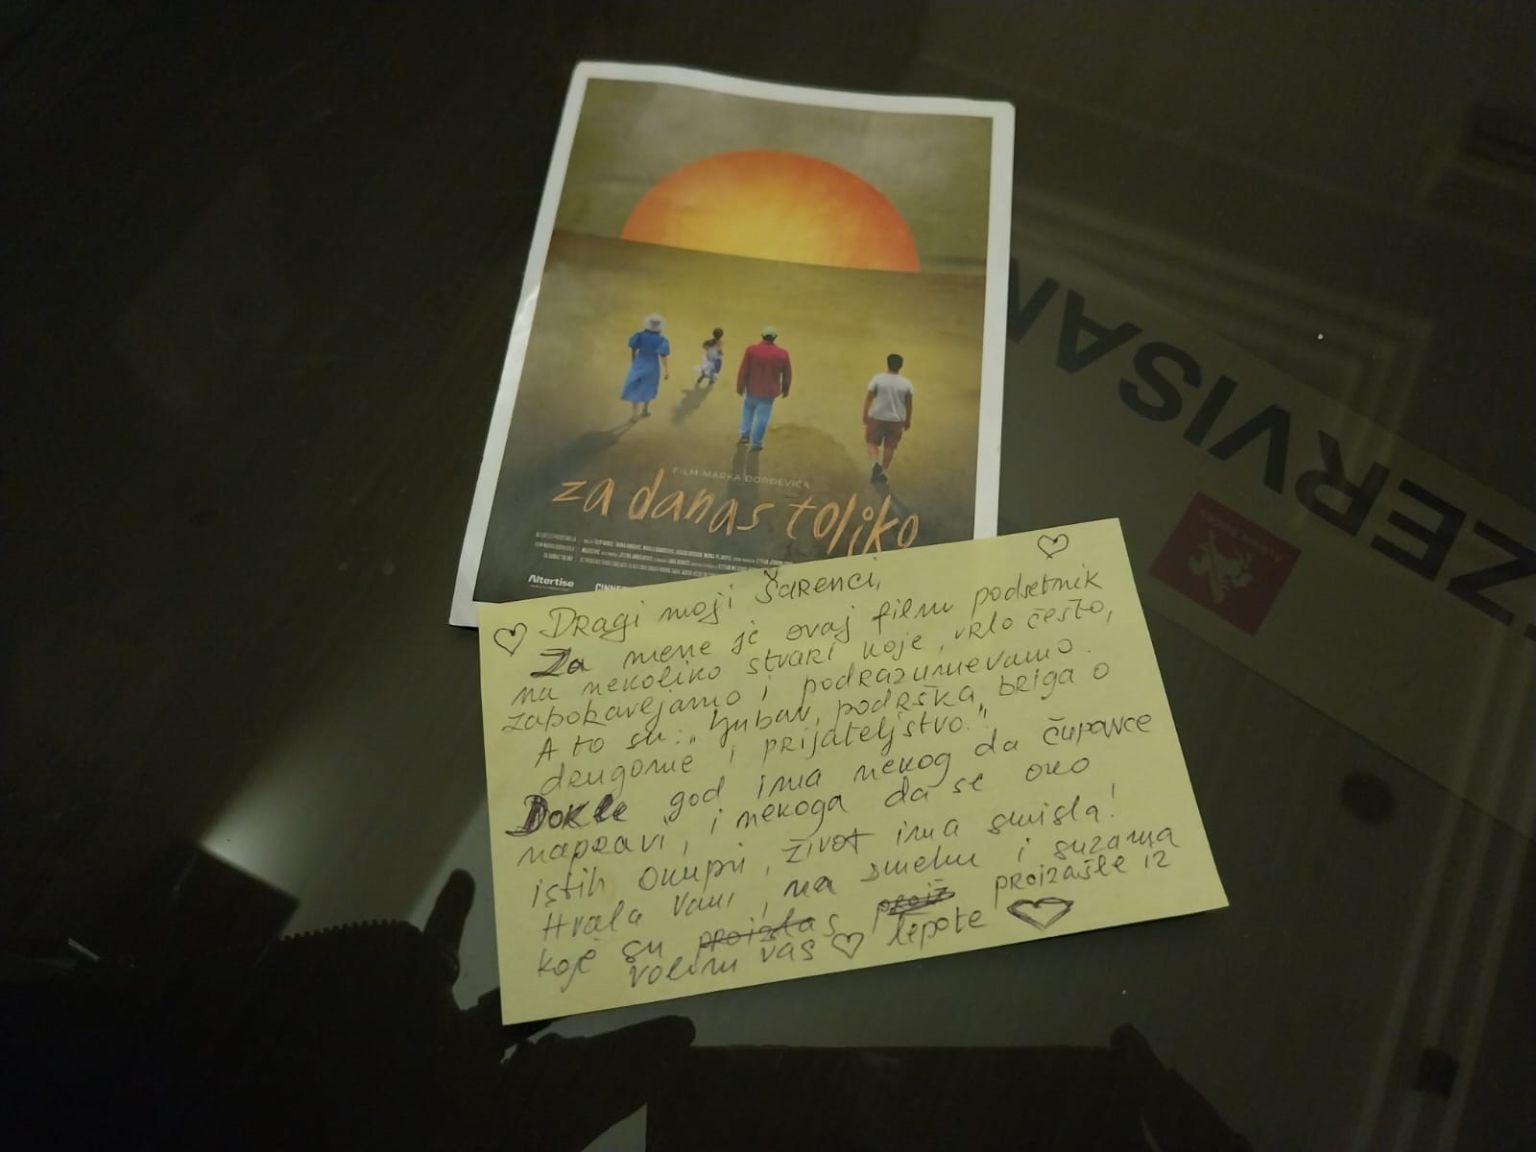 FILM MARKA ĐORĐEVIĆA
za danas toliko
Altertise
♡ Dragi moji Šarenci, ♡
Za mene je ovaj film podsetnik
na nekoliko stvari koje, vrlo često,
zaboravljamo i podrazumevamo.
A to su: „ljubav, podrška, briga o
drugome i prijateljstvo."
Dokle god ima nekog da čupavce
napravi, i nekoga da se oko
istih okupi, život ima smisla!
Hvala vam, na smehu i suzama
koje su proizašle iz
volim vas ♡ lepote ♡
ZERVISAN